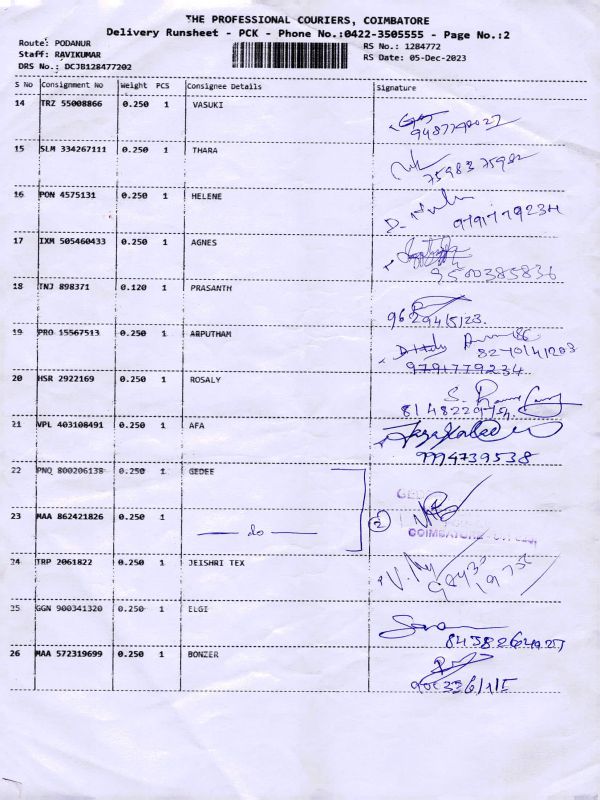 THE PROFESSIONAL COURIERS, COIMBATORE
Delivery Runsheet - PCK - Phone No.:0422-3505555 - Page No.:2
Route: PODANUR
RS No.: 1284772
Staff: RAVIKUMAR
RS Date: 05-Dec-2023
DRS No.: DCJB128477202
S No Consignment No Weight PCS Consignee Details Signature
14 TRZ 55008866 0.250 1 VASUKI
9487790027
15 SLM 334267111 0.250 1 THARA
7598375982
16 PON 4575131 0.250 1 HELENE
9791779234
17 IXM 505460433 0.250 1 AGNES
9500385836
18 TNJ 898371 0.120 1 PRASANTH
19 PRO 15567513 0.250 1 ARPUTHAM
9791779234
20 HSR 2922169 0.250 1 ROSALY
21 VPL 403108491 0.250 1 AFA
9994739538
22 PNQ 800206138 0.250 1 GEDEE
23 MAA 862421826 0.250 1 do 2
COIMBATORE
24 TRP 2061822 0.250 1 JEISHRI TEX
25 GGN 900341320 0.250 1 ELGI
26 MAA 572319699 0.250 1 BONZER